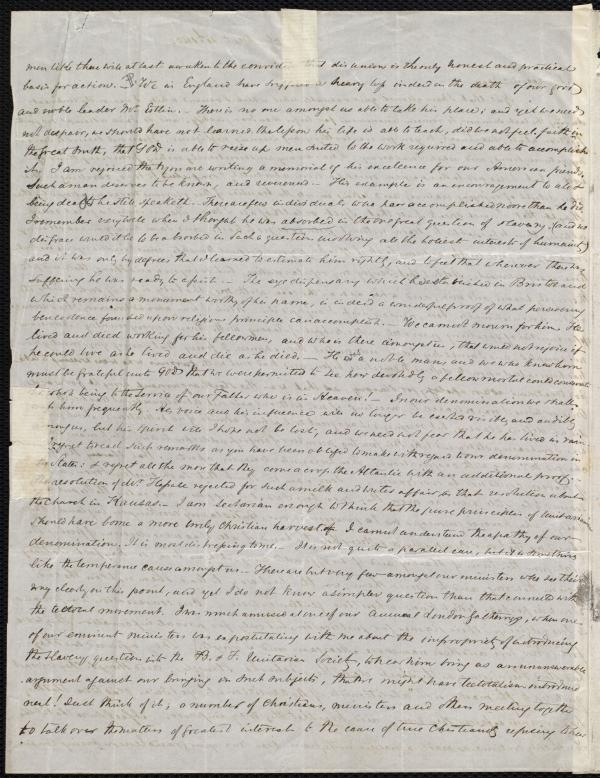 men little those will at last awaken to the convict that disunion is the only honest and practical
basis for action. We in England have a heavy loss indeed in the death of our good
and noble leader Mr. Estlin. There is no one amongst us able to take his place; and yet we need
not despair, as should have not learned the lesson his life is able to teach, did we not feel faith in
the great truth, that God is able to raise up men suited to the work required and able to accomplish
it. I am rejoiced that you are writing a memorial of his excellence for our American friends.
Such a man deserves to be known, and reverenced. His example is an encouragement to all &
being dead he still speaketh. There are few individuals who have accomplished more than he did.
I remember very well when I thought he was absorbed in the one great question of slavery, (and no
disgrace would it be to be absorbed in such a question involving all the holiest interests of humanity)
and it was only by degrees that I learned to estimate him rightly, and to feel that wherever there was
suffering he was ready to assist. The eye dispensary which he established in Bristol and
which remains a monument worthy of his name, is indeed a wonderful proof of what persevering
benevolence founded upon religious principle can accomplish. We cannot mourn for him. He
lived and died working for his fellow men, and who is there amongst us, that would not rejoice if
he could live as he lived and die as he died. He was a noble man, and we who knew him
must be grateful unto God that we were permitted to see how devotedly a fellow mortal could consecrate
his whole being to the service of our Father who is in Heaven! In our denomination we shall
him frequently. His voice and his influence will no longer be exerted visibly and audibly
amongst us, but his spirit will I hope not be lost, and we need not fear that he has lived in vain.
I regret to read such remarks as you have been obliged to make with regard to our denomination in
: I regret all the more that they come across the Atlantic with an additional proof.
The resolution of Mr. rejected for such a milk and water affair as that resolution about
the church in Kansas. I am Sectarian enough to think that the pure principles of Unitarianism
should have borne a more truly Christian harvest. I cannot understand the apathy of our
denomination. It is most disheartening to me. It is not quite a parallel case, but it is something
like the temperance cause amongst us. There are but very few amongst our ministers who see their
way clearly on this point, and yet I do not know a simpler question than that connected with
the teetotal movement. I was much amused at one of our annual London gatherings, when one
of our eminent ministers was expostulating with me about the impropriety of introducing
the slavery question into the B. & F. Unitarian Society, to hear him bring as an unanswerable
argument against our bringing on such subjects, that we might have teetotalism introduced
next! Just think of it, a number of Christians, ministers and others meeting together
to talk over the matters of greatest interest to the cause of true Christianity refusing to hear